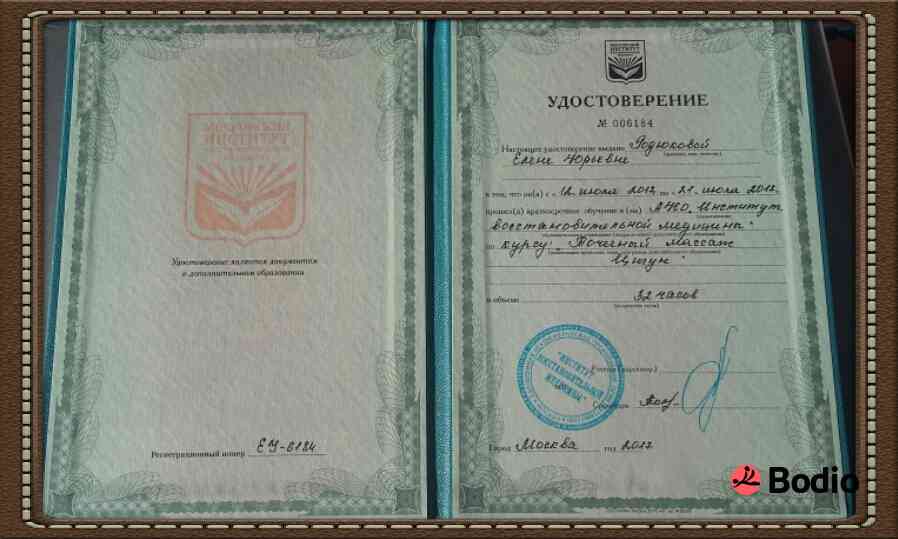 Удостоверение является документом
о дополнительном образовании
Регистрационный номер ЕУ-6184
ИНСТИТУТ
УДОСТОВЕРЕНИЕ
№ 006184
Настоящее удостоверение выдано Родюковой
Елене Юрьевне
в том, что он(а) с «12 июля 2012 по «21 июля 2012
прошел(а) краткосрочное обучение в (на) АНО "Институт
восстановительной медицины"
по курсу: "Точечный массаж
Цигун"
в объеме 32 часов
"ИНСТИТУТ
ВОССТАНОВИТЕЛЬНОЙ
МЕДИЦИНЫ"
Ректор (директор)
Секретарь
Город Москва год 2012
Bodio